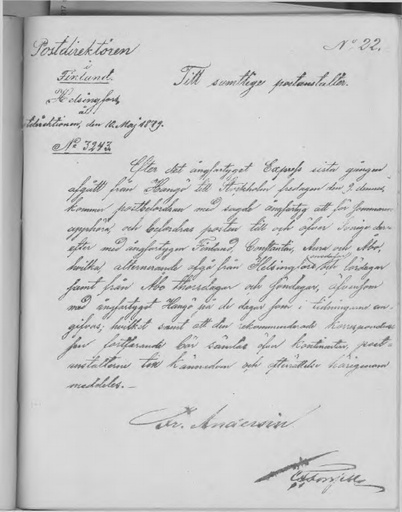 Postdirektören
i
Finland.
Helsingfors,
å
den 10 Maj 1879.
No 3243.
No 22.
Till samtlige postanstalter.
Efter det ångfartyget Express sista gången
afgått från Hangö till Stockholm fredagen den 9 dennes,
kommer postbefordran med sagde ångfartyg att för sommaren
upphöra, och befordras posten till och öfver Sverige der-
efter med ångfartygen Finland, Constantin, Aura och Åbo,
hvilka, alternerande afgå från Helsingfors och lördagar
samt från Åbo thorsdagar och söndagar, äfvensom
med ångfartyget Hangö på de dagar som i tidningarne an-
gifvas; hvilket samt att den rekommenderade korrespondens
fortfarande bör sändas öfver kontinenten, post-
anstalterne till kännedom och efterrättelse härigenom
meddelas.—
Fr. Andersin